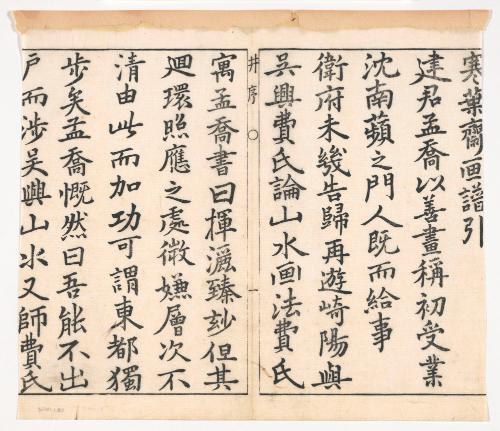 寒葉齋画譜引
建君孟喬以善畫稱初受業
沈南蘋之門人既而給事
衛府未幾告歸再遊崎陽與
吳興費氏論山水画法費氏
井序 一
寓孟喬書曰揮灑臻玅但其
迴環照應之處微嫌層次不
清由此而加功可謂東都獨
步矣孟喬慨然曰吾能不出
戸而涉吳興山水又師費氏